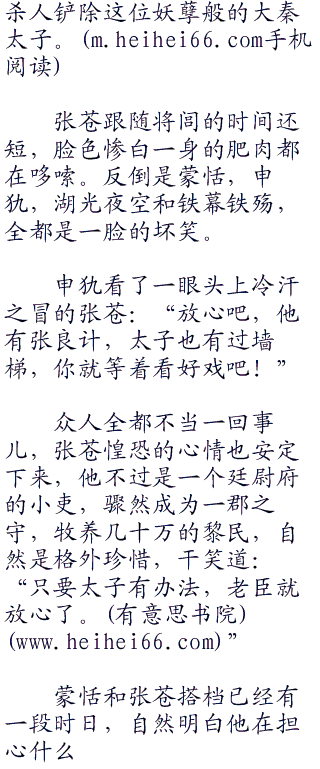 杀人铲除这位妖孽般的大秦
太子。(m.heihei66.com手机
阅读)
张苍跟随将闾的时间还
短，脸色惨白一身的肥肉都
在哆嗦。反倒是蒙恬，申
犰，湖光夜空和铁幕铁殇，
全都是一脸的坏笑。
申犰看了一眼头上冷汗
之冒的张苍：“放心吧，他
有张良计，太子也有过墙
梯，你就等着看好戏吧！”
众人全都不当一回事
儿，张苍惶恐的心情也安定
下来，他不过是一个廷尉府
的小吏，骤然成为一郡之
守，牧养几十万的黎民，自
然是格外珍惜，干笑道：
“只要太子有办法，老臣就
放心了。(有意思书院)
(www.heihei66.com)”
蒙恬和张苍搭档已经有
一段时日，自然明白他在担
心什么